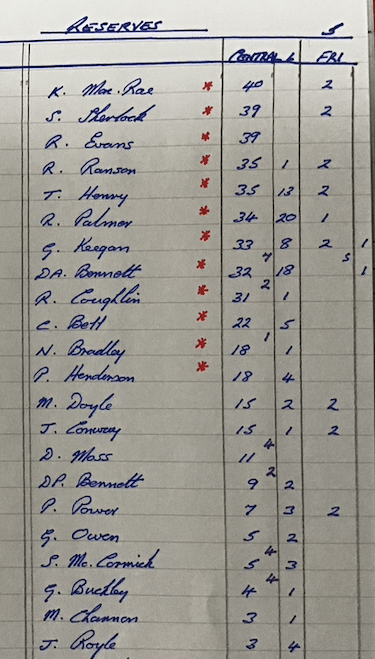 RESERVES S
CENTRAL L FRI
K. Mac.Rae * 40 2
S. Sherlock * 39 2
R. Evans * 39
R. Ranson * 35 1 2
T. Henry * 35 13 2
R. Palmer * 34 20 1
G. Keegan * 33 8 2 1
DA. Bennett * 32 4 18 5 1
R. Coughlin * 31 2 1
C. Bett * 22 5
N. Bradley * 18 1 1
P. Henderson * 18 4
M. Doyle 15 2 2
J. Conway 15 1 2
D. Moss 11 4
DP. Bennett 9 2 2
P. Power 7 3 2
G. Owen 5 2
S. Mc.Cormick 5 4 3
G. Buckley 4 4 1
M. Channon 3 1
J. Royle 3 4